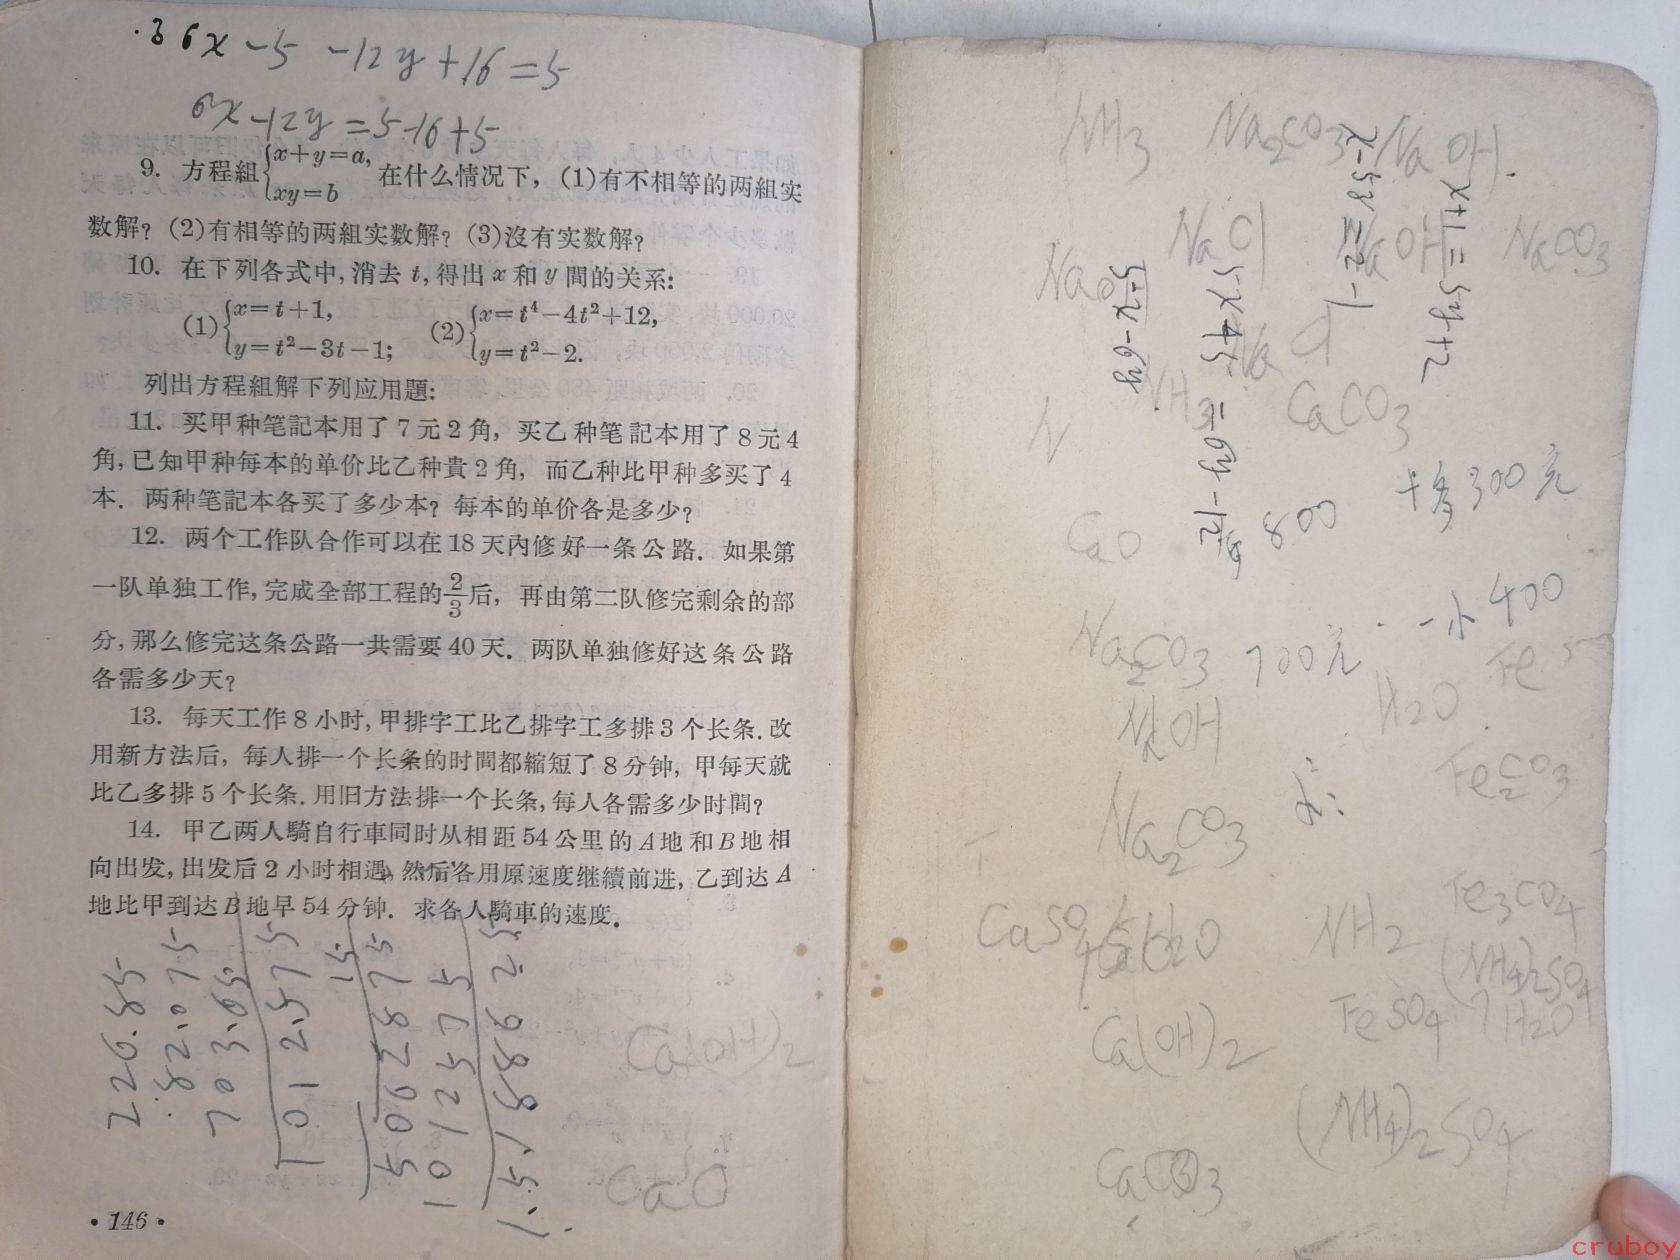 36x-5 -12y+16=5
6x-12y=5-16+5
9. 方程組{x+y=a, xy=b 在什么情况下，(1)有不相等的两組实
数解？(2)有相等的两組实数解？(3)沒有实数解？
10. 在下列各式中，消去 t，得出 x 和 y 間的关系：
(1){x=t+1, y=t²-3t-1; (2){x=t⁴-4t²+12, y=t²-2.
列出方程組解下列应用題：
11. 买甲种笔記本用了7元2角，买乙种笔記本用了8元4
角，已知甲种每本的单价比乙种貴2角，而乙种比甲种多买了4
本．两种笔記本各买了多少本？每本的单价各是多少？
12. 两个工作队合作可以在18天内修好一条公路．如果第
一队单独工作，完成全部工程的2/3后，再由第二队修完剩余的部
分，那么修完这条公路一共需要40天．两队单独修好这条公路
各需多少天？
13. 每天工作8小时，甲排字工比乙排字工多排3个长条．改
用新方法后，每人排一个长条的时間都縮短了8分钟，甲每天就
比乙多排5个长条．用旧方法排一个长条，每人各需多少时間？
14. 甲乙两人騎自行車同时从相距54公里的A地和B地相
向出发，出发后2小时相遇，然后各用原速度继續前进，乙到达A
地比甲到达B地早54分钟．求各人騎車的速度．
226.85
82.075
703.65
1012.575
15
5062875
1012575
15188625
Ca(OH)2
CaO
·146·
NH3 Na2CO3 NaOH
x-5y=2-1
x+1=5y+2
NaCl NaOH NaCO3
5-x-6y
5-x+5=6y-12
NaCl
NH3 CaCO3
N
800 300元
CaO
400
Na2CO3 700元
Fe
H2O
OH
Fe2CO3
Na2CO3
Fe3CO4
CaSO4 H2O NH2
(NH4)2SO4
FeSO4 7H2O
Ca(OH)2
(NH4)2SO4
CaCO3
cruboy